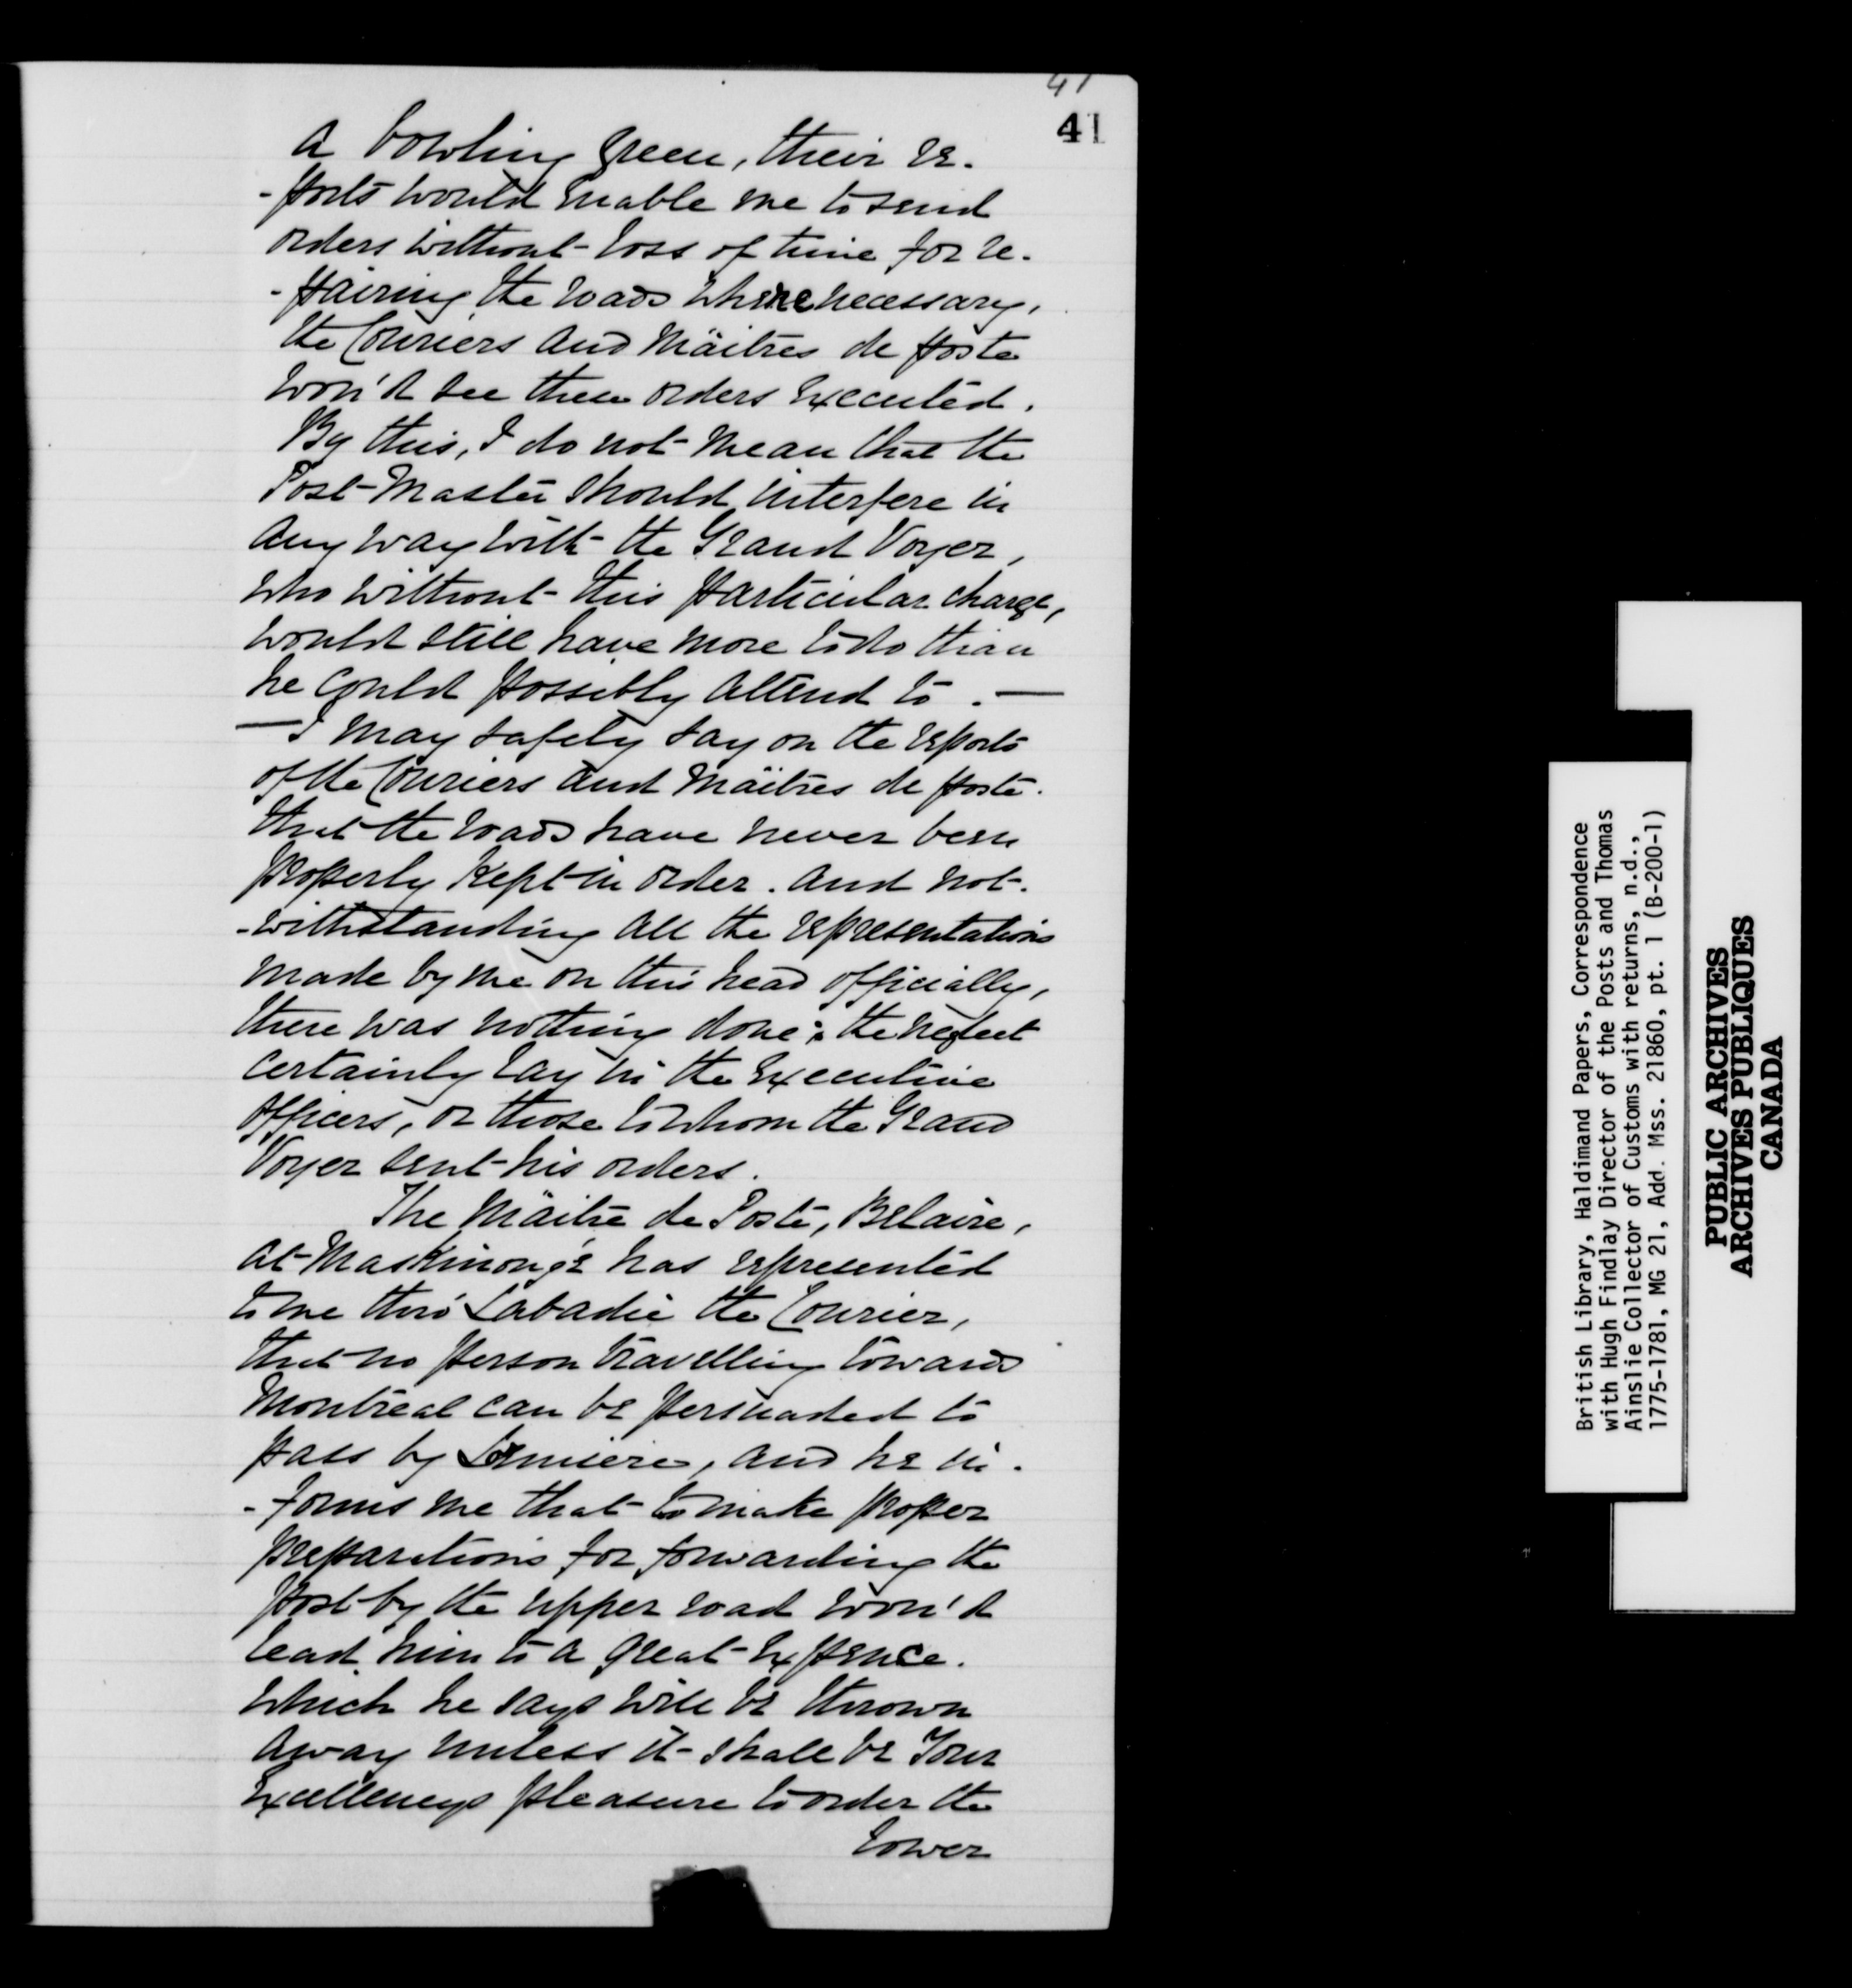 41
41
a bowling green, their re-
-ports would enable me to send
orders without loss of time for re-
-pairing the roads where necessary,
the Couriers and Maitres de poste
wou'd see these orders executed.
By this, I do not mean that the
Post-Master should interfere in
any way with the Grand Voyer,
who without this particular charge,
would still have more to do than
he could possibly attend to. —
— I may safely say on the reports
of the Couriers and Maitres de poste.
that the roads have never been
properly kept in order. and not-
-withstanding all the representations
made by me on this head officially,
there was nothing done; the neglect
certainly lay in the Executive
officers, or those to whom the Grand
Voyer sent his orders.
The Maitre de Poste, Belaire,
at Maskinongé has represented
to me thro' Labadie the Courier,
that no person travelling towards
Montreal can be persuaded to
pass by Lormiere, and he in-
-forms me that to make proper
preparations for forwarding the
post by the upper road wou'd
lead him to a great expence.
which he says will be thrown
away unless it shall be Your
Excellencys pleasure to order the
lower
British Library, Haldimand Papers, Correspondence
with Hugh Findlay Director of the Posts and Thomas
Ainslie Collector of Customs with returns, n.d.,
1775-1781, MG 21, Add. Mss. 21860, pt. 1 (B-200-1)
PUBLIC ARCHIVES
ARCHIVES PUBLIQUES
CANADA